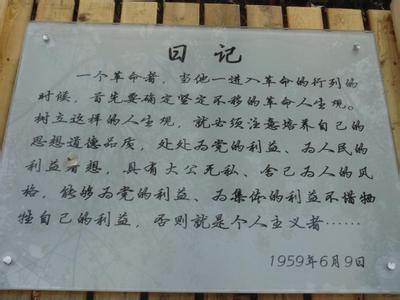 日记
一个革命者，当他一进入革命的行列的
时候，首先要确定坚定不移的革命人生观。
树立这样的人生观，就必须注意培养自己的
思想道德品质，处处为党的利益、为人民的
利益着想，具有大公无私、舍己为人的风
格，能够为党的利益、为集体的利益不惜牺
牲自己的利益，否则就是个人主义者……
1959年6月9日